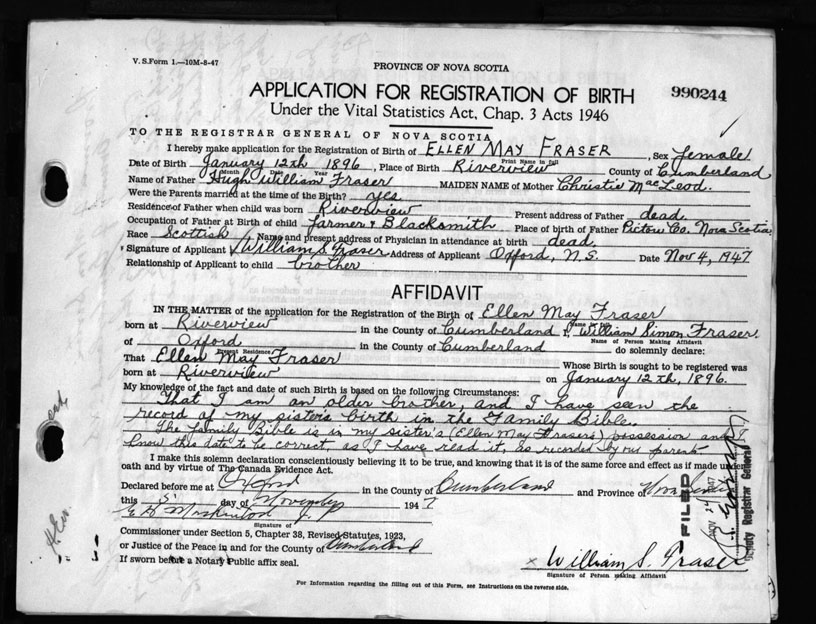 V. S. Form 1.—10M-8-47
PROVINCE OF NOVA SCOTIA
APPLICATION FOR REGISTRATION OF BIRTH
990244
Under the Vital Statistics Act, Chap. 3 Acts 1946
TO THE REGISTRAR GENERAL OF NOVA SCOTIA
I hereby make application for the Registration of Birth of ELLEN MAY FRASER, Sex female
Print Name in full
Date of Birth January 12th 1896, Place of Birth Riverview County of Cumberland
Month Date Year
Name of Father Hugh William Fraser MAIDEN NAME of Mother Christie MacLeod.
Were the Parents married at the time of the Birth? yes
Residence of Father when child was born Riverview Present address of Father dead.
Occupation of Father at Birth of child farmer & Blacksmith Place of birth of Father Pictou Co. Nova Scotia
Race Scottish Name and present address of Physician in attendance at birth dead.
Signature of Applicant William S. Fraser Address of Applicant Oxford, N.S. Date Nov 4, 1947
Relationship of Applicant to child brother
AFFIDAVIT
IN THE MATTER of the application for the Registration of Birth of Ellen May Fraser
Name in full
born at Riverview in the County of Cumberland I, William Simon Fraser
Name of Person Making Affidavit
of Oxford in the County of Cumberland do solemnly declare:
Present Residence
That Ellen May Fraser Whose Birth is sought to be registered was
born at Riverview on January 12th, 1896.
My knowledge of the fact and date of such Birth is based on the following Circumstances:
That I am an older brother, and I have seen the
record of my sister's birth in the Family Bible.
The family Bible is in my sister's (Ellen May Frasers) possession and
know this date to be correct, as I have read it, as recorded by our parents
I make this solemn declaration conscientiously believing it to be true, and knowing that it is of the same force and effect as if made under
oath and by virtue of The Canada Evidence Act.
Declared before me at Oxford in the County of Cumberland and Province of Nova Scotia
this 5 day of November 1947
Signature of
Commissioner under Section 5, Chapter 38, Revised Statutes, 1923,
or Justice of the Peace in and for the County of Cumberland
If sworn before a Notary Public affix seal.
x William S. Fraser
Signature of Person making Affidavit
For Information regarding the filling out of this Form, see Instructions on the reverse side.
FILED
NOV 1947
Deputy Registrar General